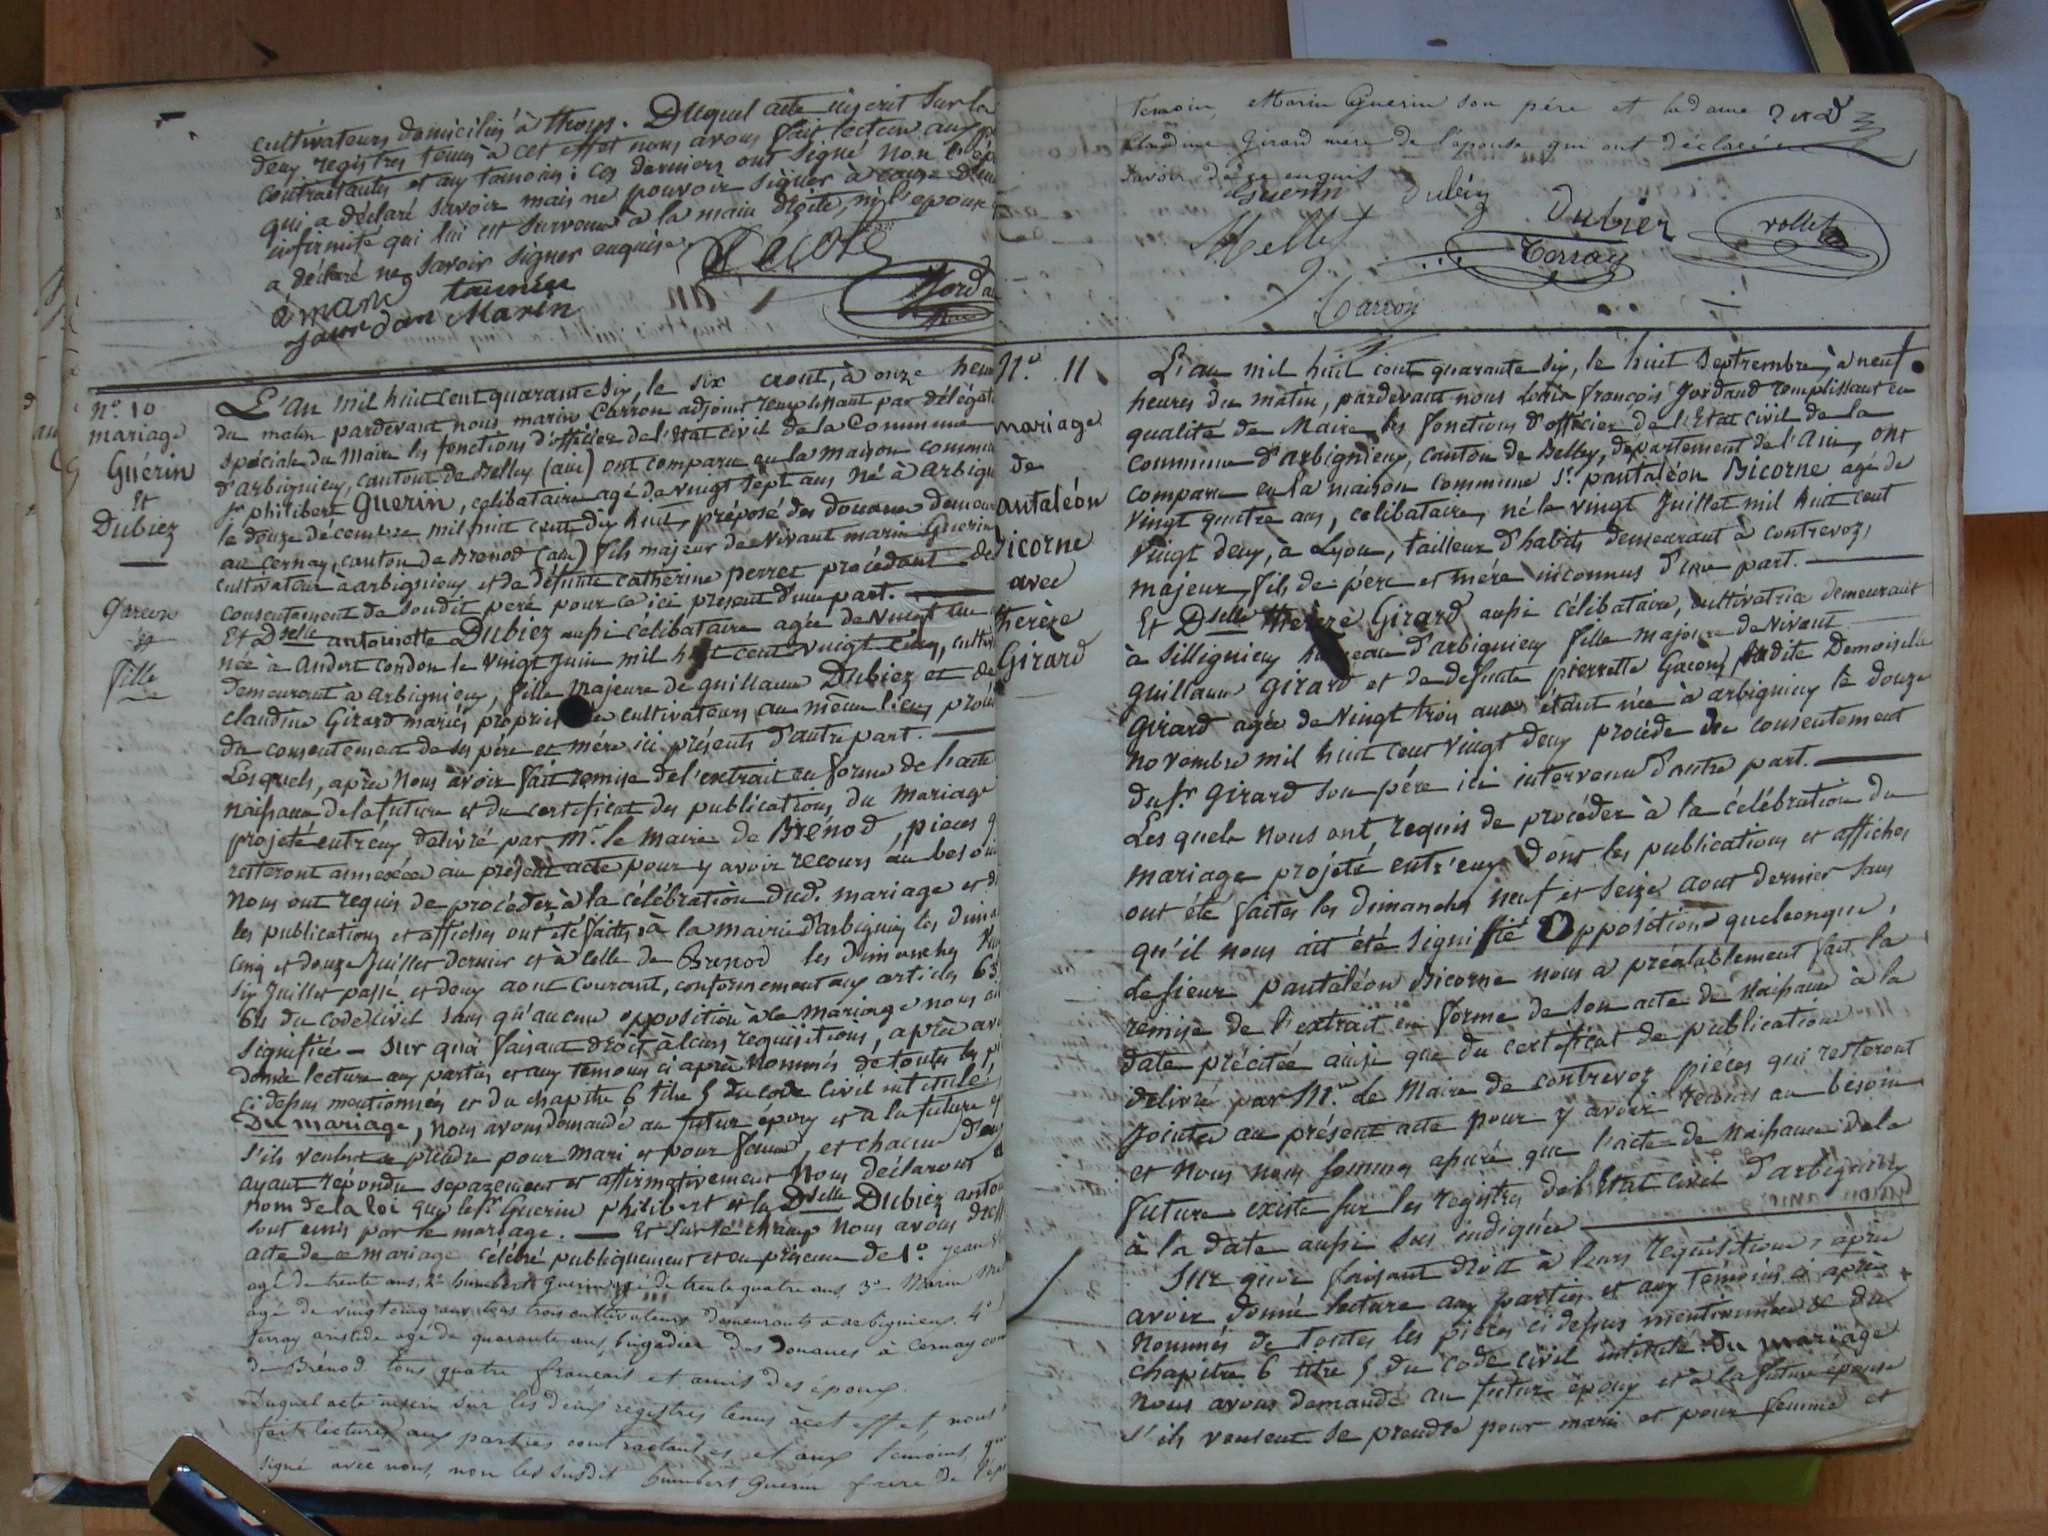 cultivateurs domiciliés à thoys. Duquel acte inscrit Sur les
deux registres tenus à cet effet nous avons fait lecture aux
contractants et aux temoins: ces derniers ont signé non l'ép
qui a déclaré savoir mais ne pouvoir signer à cause d'une
infirmité qui lui est survenue à la main droite, ni l'epouse
a déclaré ne savoir signer enquise.
jourdan Marin
N.º 10
mariage
Guérin
Et
Dubiez
garcon
et
fille
L'An mil huit cent quarante six, le six aout, à onze heu
du matin pardevant nous marin Carron adjoint remplissant par délégati
spéciale du Maire les fonctions d'officier de l'Etat civil de la Commune
d'arbignieu, canton de Belley (ain) ont comparu en la maison commu
Sr philibert Guerin, celibataire agé de vingt sept ans né à Arbign
le douze décembre mil huit cent dix huit, préposé des douanes demeur
au Cernay, canton de Brenod (ain) fils majeur de vivant marin Guerin
cultivateur à arbignieu et de défunte catherine perret procédant de
consentement de sondit peré pour ce ici présent d'une part.
Et Dselle antoinette Dubiez aussi célibataire agée de vingt un
née à Andert condon le vingt juin mil huit cent vingt cinq, cultiv
demeurant à Arbignieu, fille Majeure de guillaume Dubiez et de
claudine Girard mariés propriet cultivateurs au même lieu procé
du consentement de ses père et mère ici présents d'autre part.
Lesquels, après Nous avoir fait remise de l'extrait en forme de l'acte
naissance de la future et du certificat des publications du Mariage
projeté entr'eux délivré par Mr. le Maire de Brénod, pieces q
resteront annexées au présent acte pour y avoir recours au besoin
Nous ont requis de procéder à la célébration dud. mariage et d
les publications et affiches ont été faites à la mairie d'arbignieu les dima
cinq et douze Juillet dernier et à celle de Brenod les dimanches
six Juillet passé et deux aout courant, conformement aux articles 63
64 du code civil sans qu'aucune opposition à ce mariage nous ait
signifiée — Sur quoi faisant droit à leurs requisitions, après av
donné lecture aux parties et aux temoins ci après Nommés de toutes les p
ci dessus mentionnées et du chapitre 6 titre 5 du code civil intitulé,
Du mariage, nous avons demandé au futur époux et à la future ép
s'ils veulent se prendre pour mari et pour femme, et chacun d'eux
ayant répondu separement et affirmativement Nous déclarons a
nom de la loi que le Sr Guerin philibert et la Dselle Dubiez antoi
sont unis par le mariage. — Et sur le champ Nous avons dress
acte de ce mariage célébré publiquement et en présence de 1.º jean
agé de trente ans, 2º humbert Guerin agé de trente quatre ans 3º Marin
agé de vingt cinq ans tous trois cultivateurs demeurants a arbignieu, 4º
terray aristide agé de quarante ans, brigadier des Douanes à Cernay com
de Brénod tous quatre français et amis des époux
Duquel acte inscrit sur les deux registres tenus à cet effet, nous
fait lecture aux parties contractantes et aux temoins, qui
signé avec nous, non les susdit humbert guerin frère de l'ép
temoin, Marin Guerin son père et la dame
Claudine Girard mère de l'épouse qui ont déclaré ne
savoir de ce enquis
Guerin Dubiez Dubiez
Terray rollet
Carron
N.º 11
mariage
de
antaléon
Bicorne
avec
thérèze
Girard
L'an mil huit cent quarante six, le huit Septrembre, à neuf
heures du matin, pardevant nous Louis françois Jordand remplissant en
qualité de Maire les fonctions d'officier de l'Etat civil de la
commune d'arbignieu, canton de Belley, département de l'Ain, ont
comparu en la maison commune Sr. pantaléon Bicorne agé de
vingt quatre ans, celibataire, né le vingt Juillet mil huit cent
vingt deux, à Lyon, tailleur d'habits demeurant à contrevoz,
majeur, fils de père et mére inconnus d'une part.
Et Dselle therèze Girard aussi célibataire, cultivatrice demeurant
à Sillignieu hameau d'arbignieu fille majeure de vivant
guillaume girard et de defunte pierrette Gacon, ladite Demoiselle
girard agée de vingt trois ans étant née à arbignieu le douze
novembre mil huit cent vingt deux procéde de consentement
du Sr. girard son père ici intervenu d'autre part.
Lesquels nous ont requis de procéder à la célébration du
mariage projeté entr'eux dont les publications et affiches
ont été faites les dimanches neuf et seize aout dernier sans
qu'il nous ait été signifié Opposition quelconque,
le sieur pantaléon Bicorne nous a préalablement fait la
remise de l'extrait en forme de son acte de naissance à la
date précitée ainsi que du certificat de publication
délivré par Mr. le Maire de contrevoz pièces qui resteront
jointes au présent acte pour y avoir recours au besoin
et nous nous sommes assuré que l'acte de naissance de la
future existe sur les registres de l'Etat civil d'arbignieu
à la date aussi sus indiquée
Sur quoi faisant droit à leurs requisitions, après
avoir donné lecture aux parties et aux témoins ci après
nommés de toutes les pièces ci dessus mentionnées & du
chapitre 6 titre 5 du code civil intitulé du mariage
nous avons demandé au futur époux et à la future épouse
s'ils veulent se prendre pour mari et pour femme et